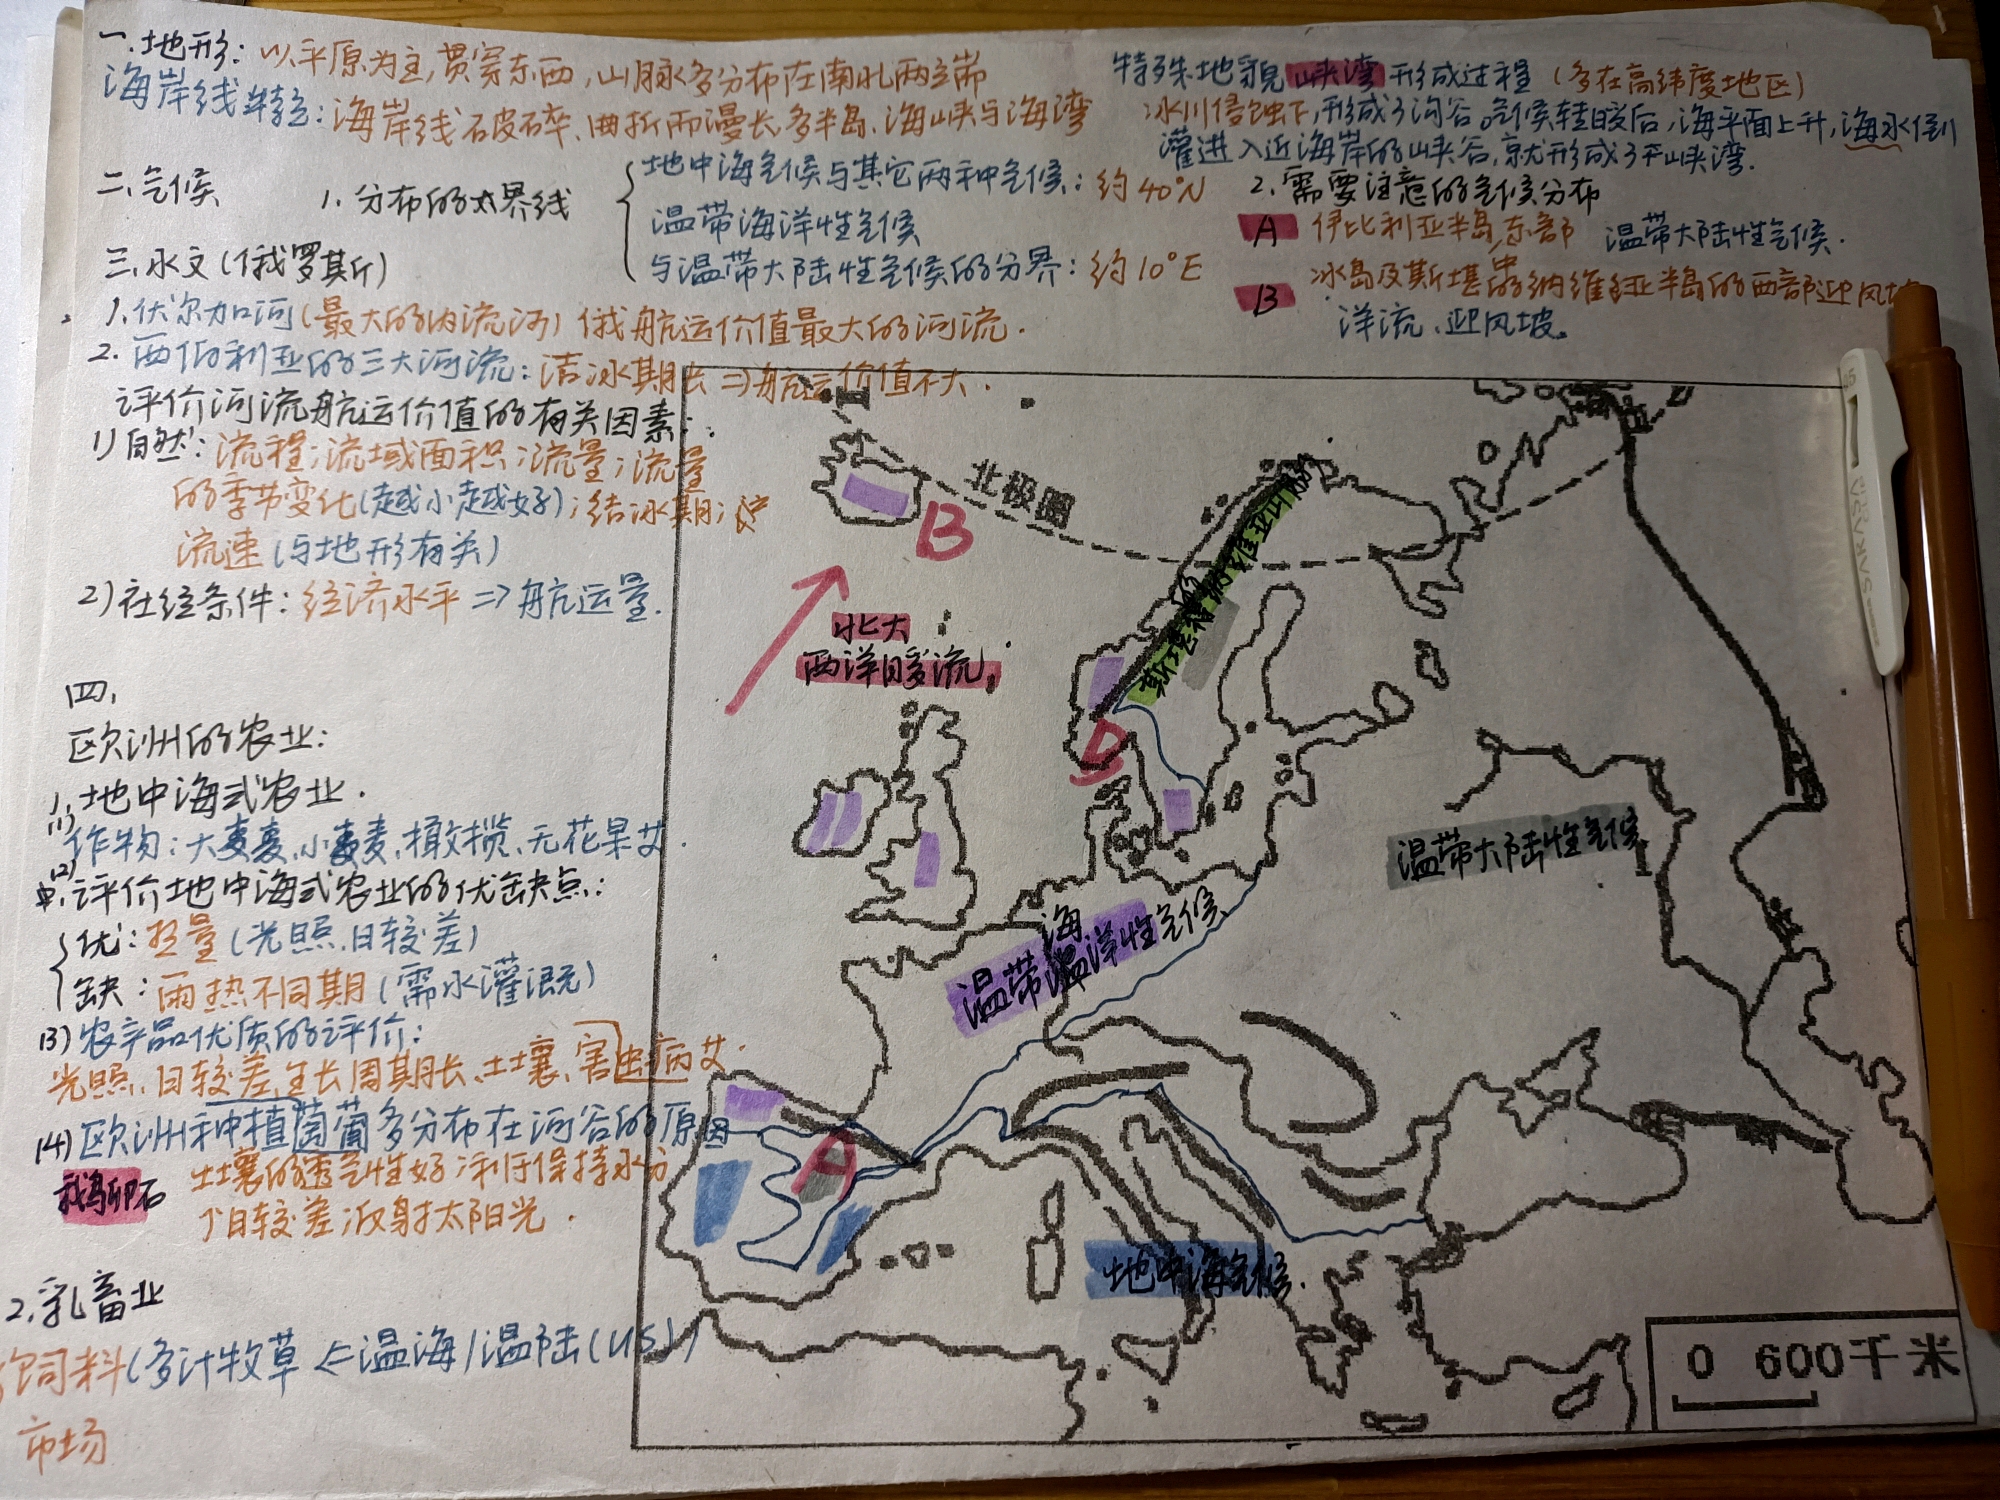 一.地形: 以平原为主,贯穿东西,山脉多分布在南北两端
海岸线特征: 海岸线破碎、曲折而漫长,多半岛、海峡与海湾
特殊地貌 峡湾 形成过程 (多在高纬度地区)
冰川侵蚀下,形成了沟谷。气候转暖后,海平面上升,海水倒
灌进入近海岸的峡谷,就形成了峡湾.
二.气候 1.分布的大界线
地中海气候与其它两种气候: 约40°N
温带海洋性气候
与温带大陆性气候的分界: 约10°E
2.需要注意的气候分布
A 伊比利亚半岛东部 温带大陆性气候.
中
B 冰岛及斯堪的纳维亚半岛的西部迎风坡
洋流、迎风坡。
三.水文(俄罗斯)
1.伏尔加河(最大的内流河) 俄航运价值最大的河流.
2.西伯利亚的三大河流: 结冰期长⇒航运价值不大.
评价河流航运价值的有关因素:
1)自然: 流程;流域面积;流量;流量
的季节变化(越小越好);结冰期;
流速(与地形有关)
2)社经条件: 经济水平⇒航运量.
四,
欧洲的农业:
1.地中海式农业.
(1)
作物: 大麦、小麦、橄榄、无花果艾.
(2)
评价地中海式农业的优缺点:
优: 热量(光照、日较差)
缺: 雨热不同期(需水灌溉)
(3)农产品优质的评价:
光照、日较差,生长周期长、土壤、害虫病艾.
(4)欧洲种植葡萄多分布在河谷的原因
鹅卵石 土壤的透气性好;利于保持水分
个日较差;反射太阳光.
2.乳畜业
饲料(多汁牧草⇐温海/温陆(US))
市场
北极圈
B
斯堪的纳维亚山脉
北大
西洋暖流
B
温带大陆性气候
海
温带温洋性气候
A
地中海气候.
0 600千米